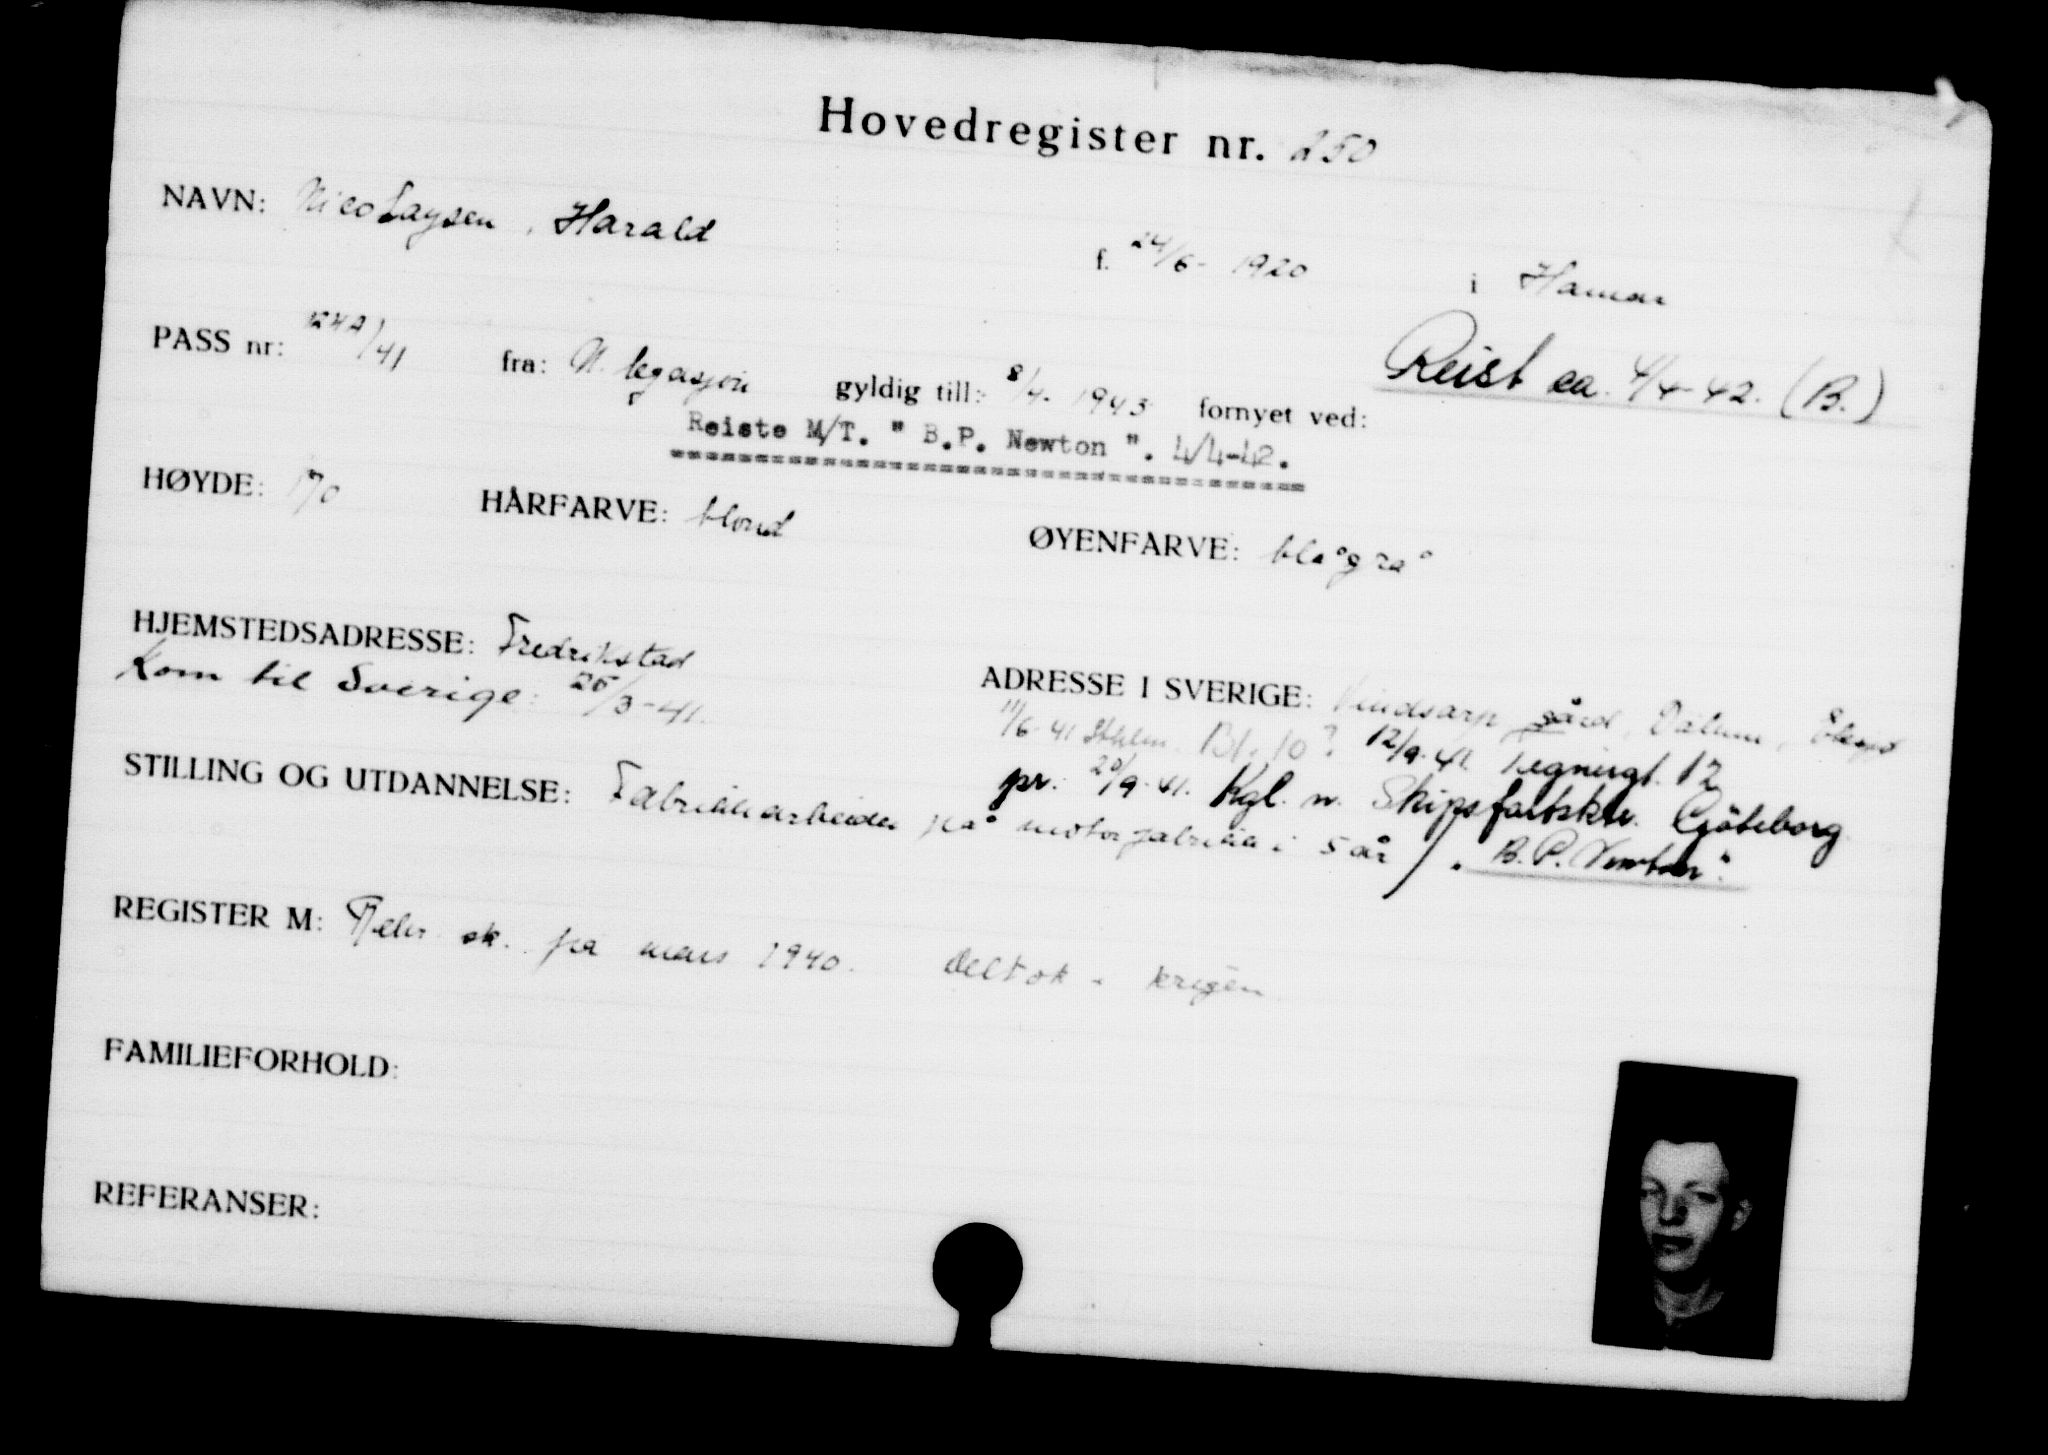 Hovedregister nr. 250
NAVN: Nicolaysen, Harald
f. 24/6 - 1920 i Hamar
PASS nr: /41 fra: N. legasjon gyldig till: 8/4. 1943 fornyet ved:
Reist ca. 4/4-42. (B.)
Reiste M/T. " B.P. Newton ". 4/4-42.
HØYDE: 170 HÅRFARVE: blond ØYENFARVE: blågrå
HJEMSTEDSADRESSE: Fredrikstad
Kom til Sverige: 25/3-41.
ADRESSE I SVERIGE: gård, Dalum,
11/6-41 Sthlm. 12/9-41. Tegnergt. 12
pr. 20/9-41. Kgl. n. Skipsfartsktr. Göteborg.
"B.P. Newton".
STILLING OG UTDANNELSE: Fabrikkarbeider på motorfabrikk i 5 år
REGISTER M: sk. fra mars 1940. Deltok i krigen
FAMILIEFORHOLD:
REFERANSER: